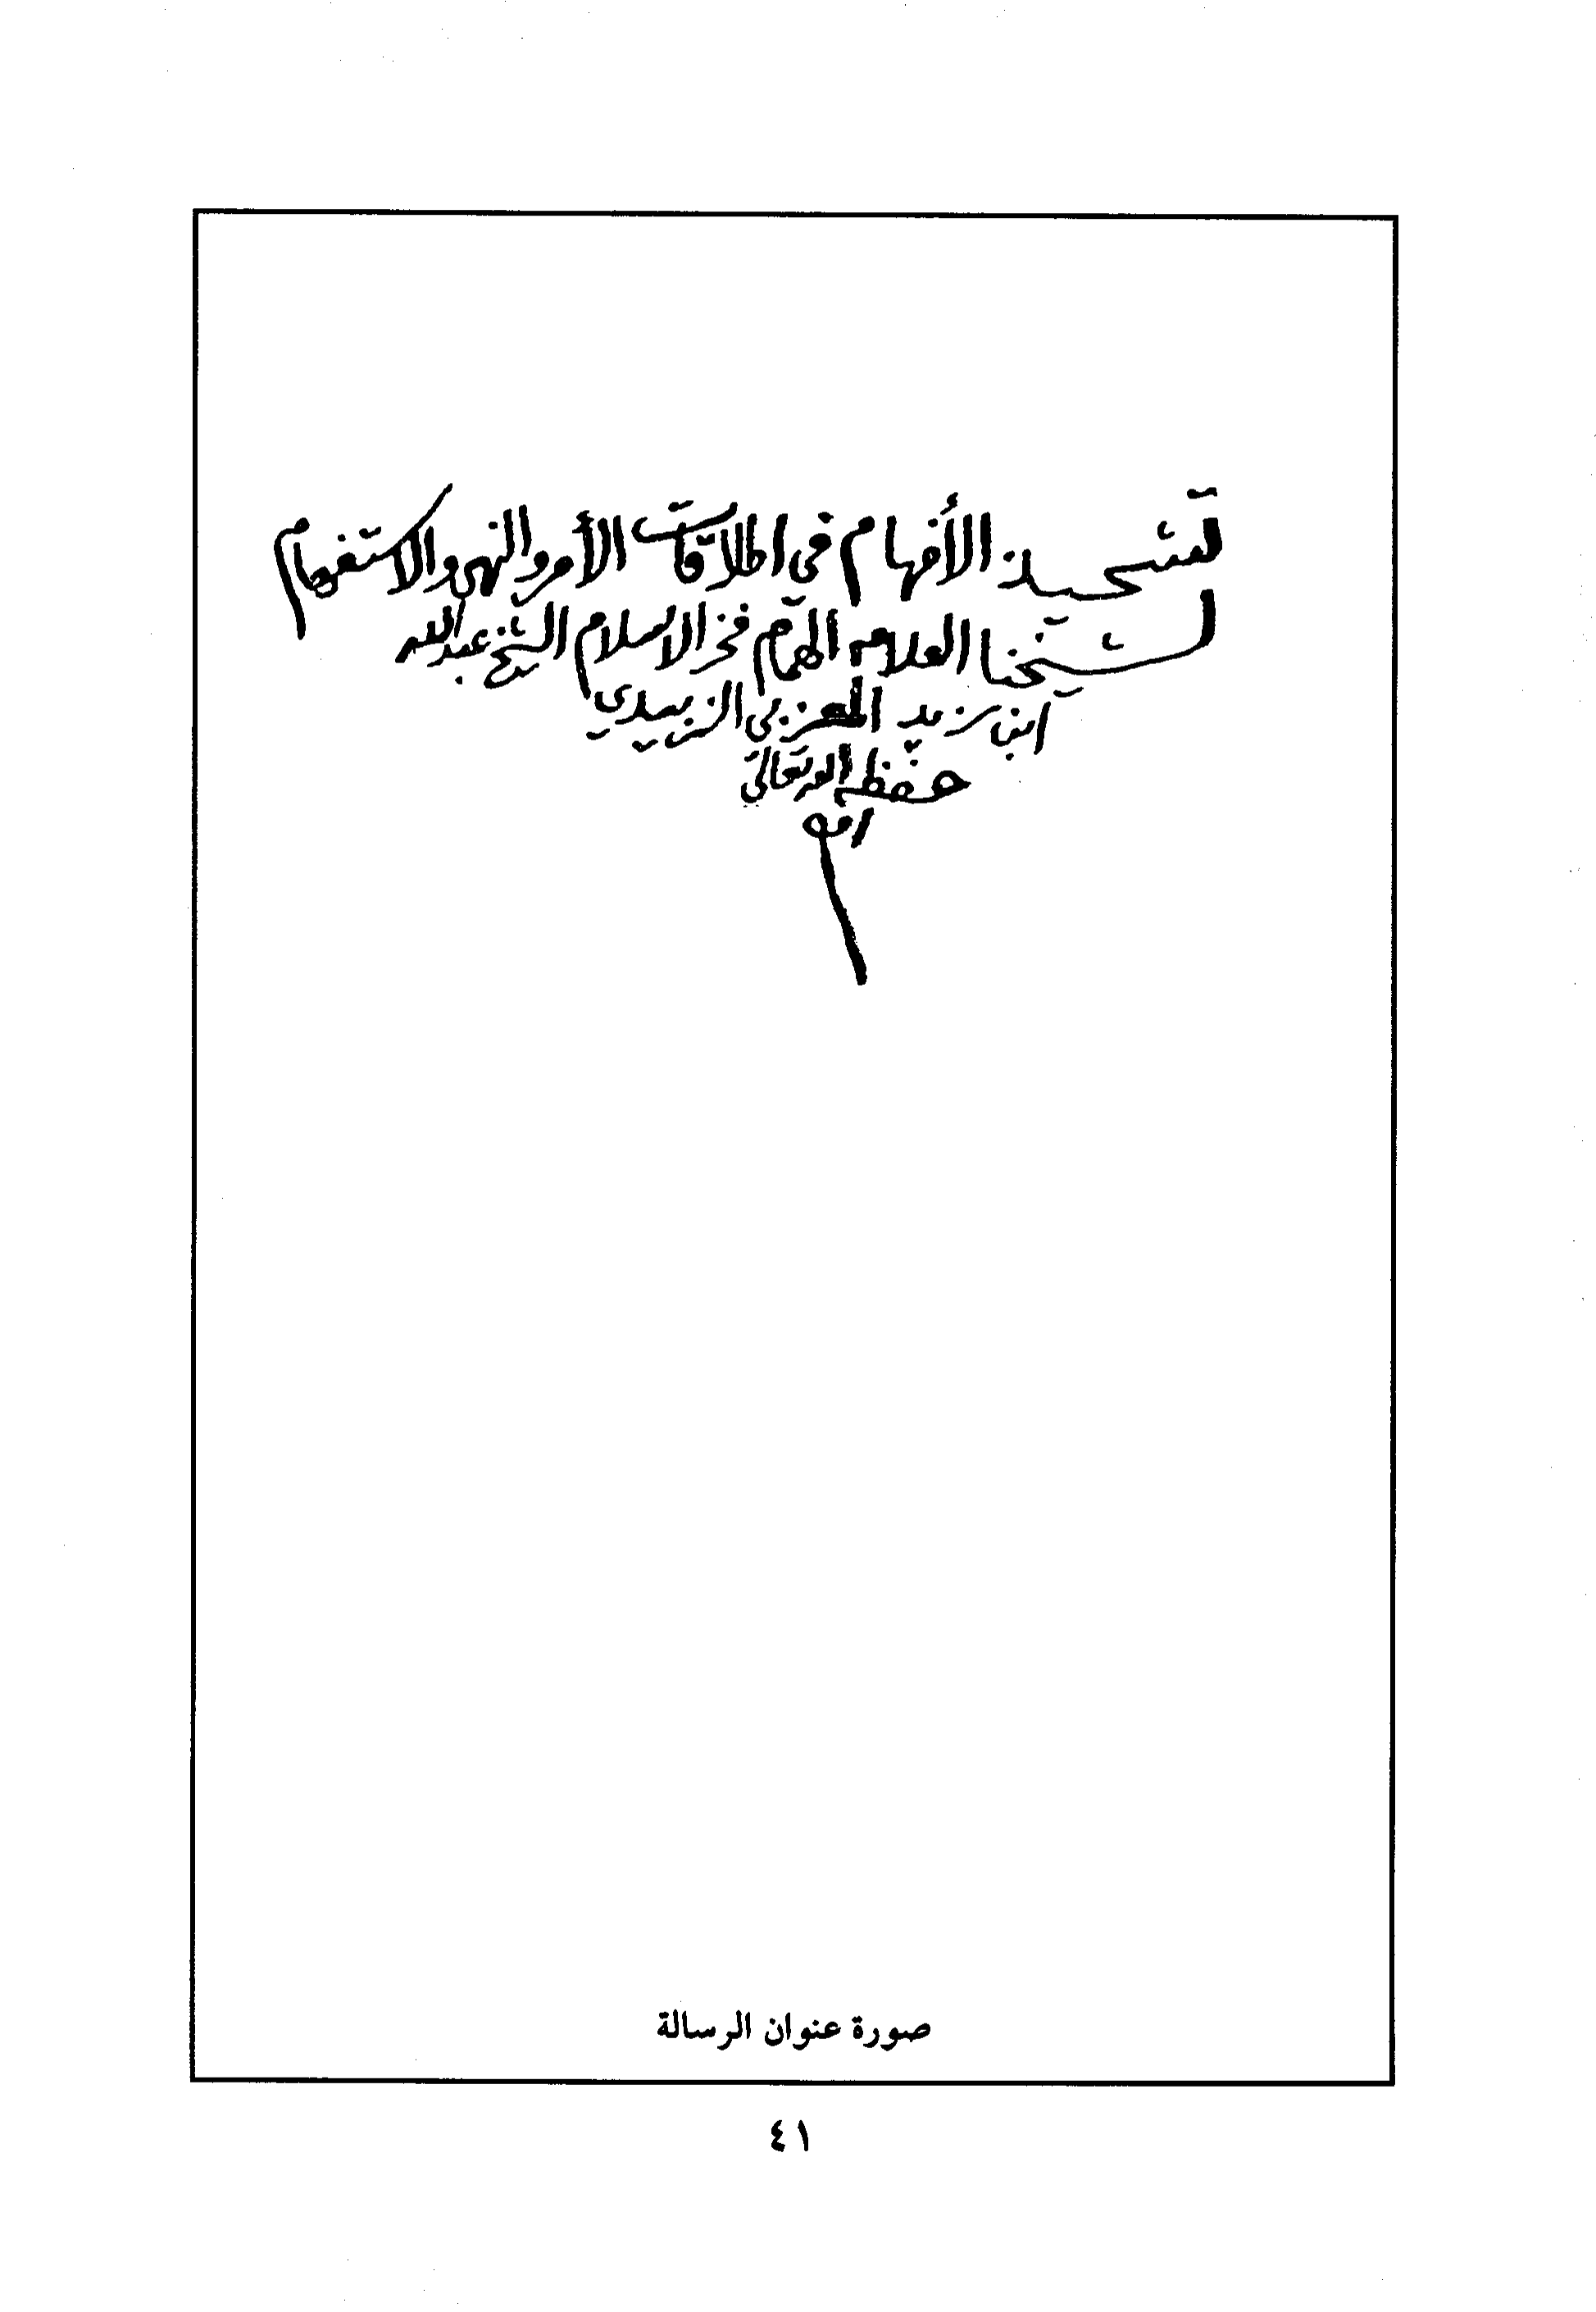 تشحيذ الأفهام في اطلاقات الأمر والنهي والاستفهام
لشيخنا العلامه الهمام فخر الاسلام الشيخ عبدالله
ابن زيد المعزبي الزبيدي
حفظه الله تعالى
صورة عنوان الرسالة
٤١